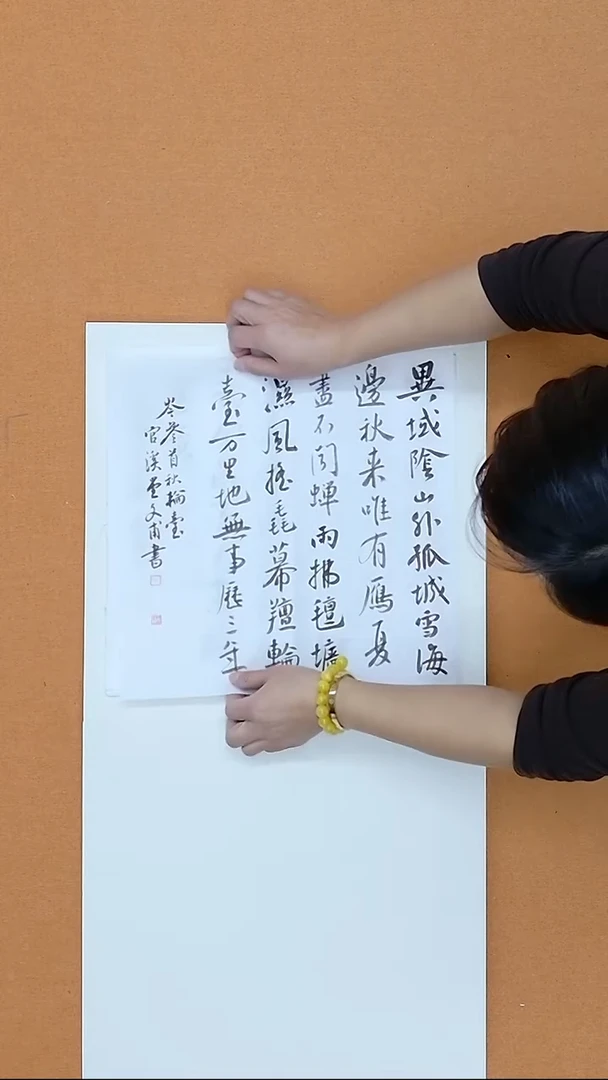 異域陰山外孤城雪海
邊秋来唯有鴈夏
盡不闻蟬雨拂氊墻
濕風摇毳幕羶輪
臺万里地無事歷三年
岑參首秋輪臺
官溪堂文甫書